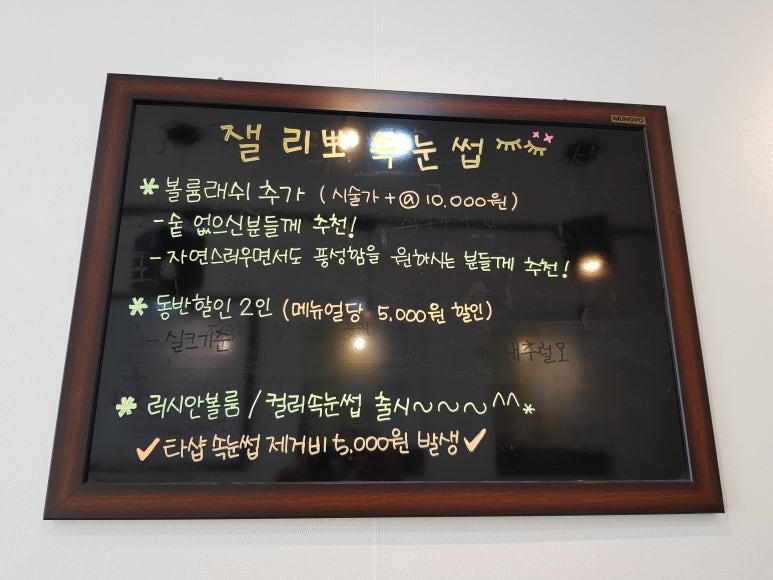 MUNGYO
잴 리뽀 속눈썹
* 볼륨래쉬 추가 (시술가 + @ 10,000원)
- 숱 없으신분들께 추천!
- 자연스러우면서도 풍성함을 원하시는 분들께 추천!
* 동반할인 2인 (메뉴얼당 5,000원 할인)
- 실크기준
* 내추럴모
* 러시안볼륨 / 컬러속눈썹 출시~~~^^*
✓타샵 속눈썹 제거비 5,000원 발생✓